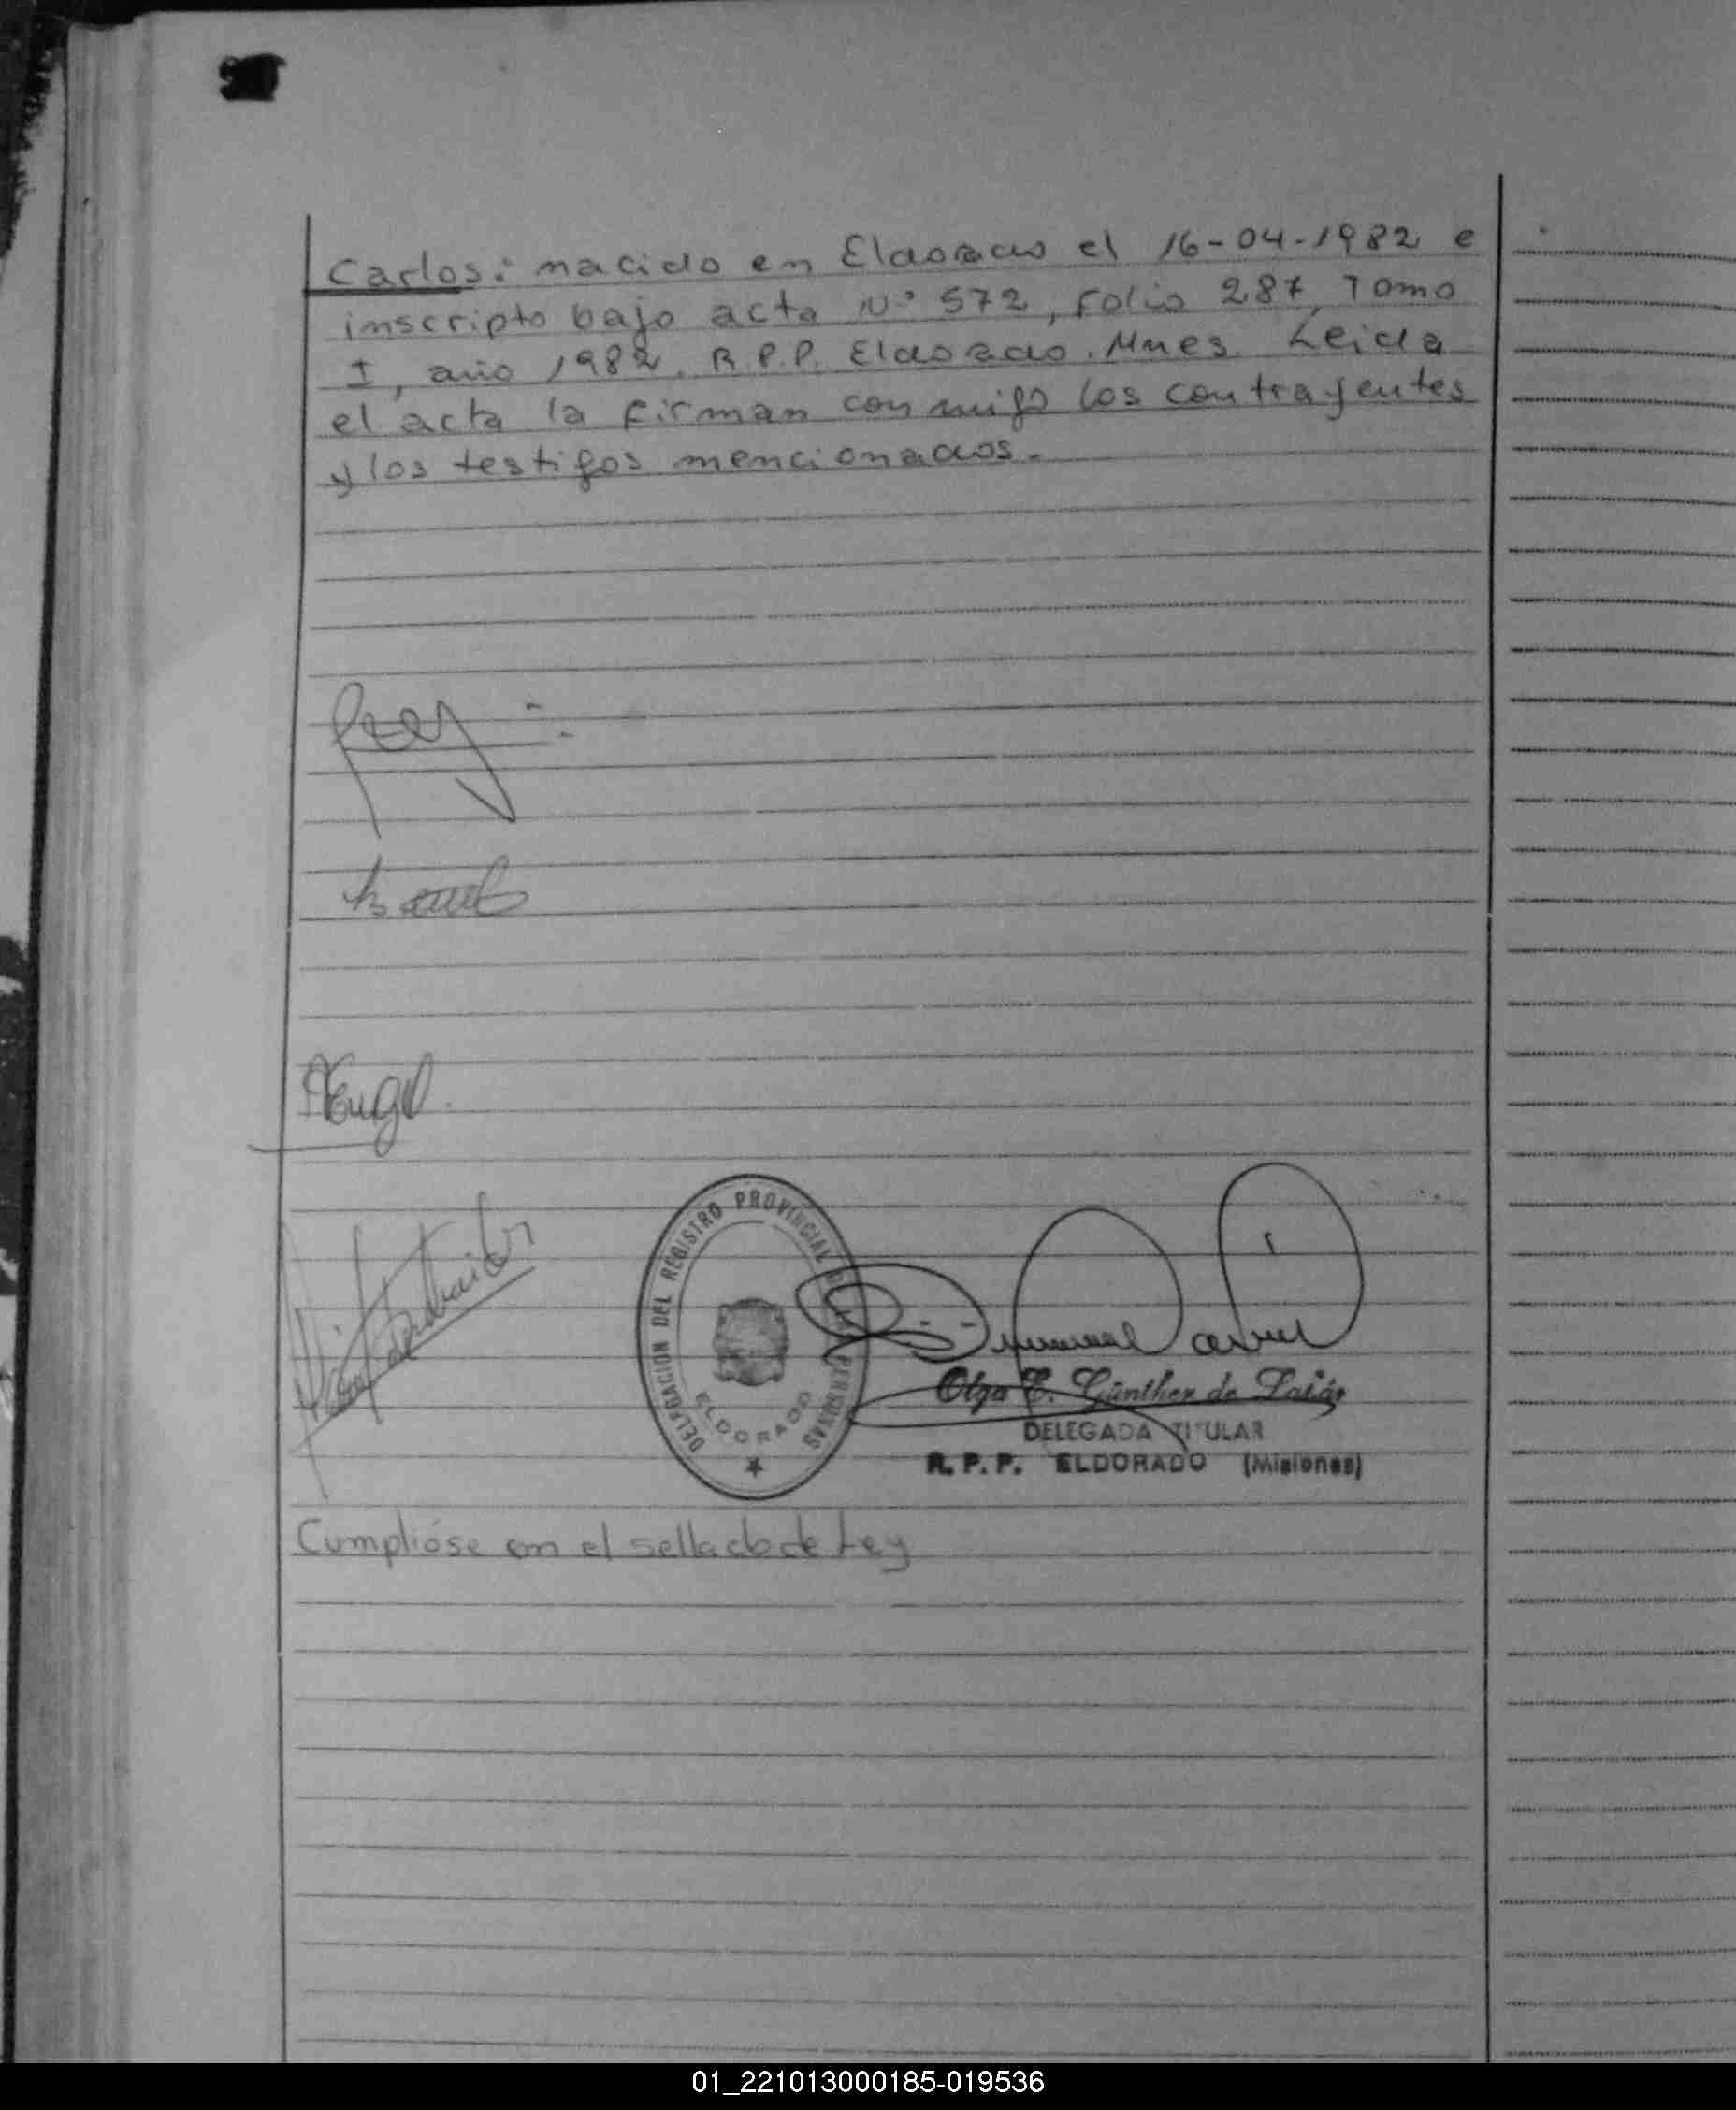 Carlos: nacido en Eldorado el 16-04-1982 e
inscripto bajo acta Nº 572, Folio 287, Tomo
I, año 1982. R.P.P. Eldorado. Mnes. Leida
el acta la firman conmigo los contrayentes
y los testigos mencionados.
DELEGACION DEL REGISTRO PROVINCIAL PERSONAS
ELDORADO
Olga E. Günther de
DELEGADA TITULAR
R. P. P. ELDORADO (Misiones)
Cumplióse con el sellado de Ley
01_221013000185-019536